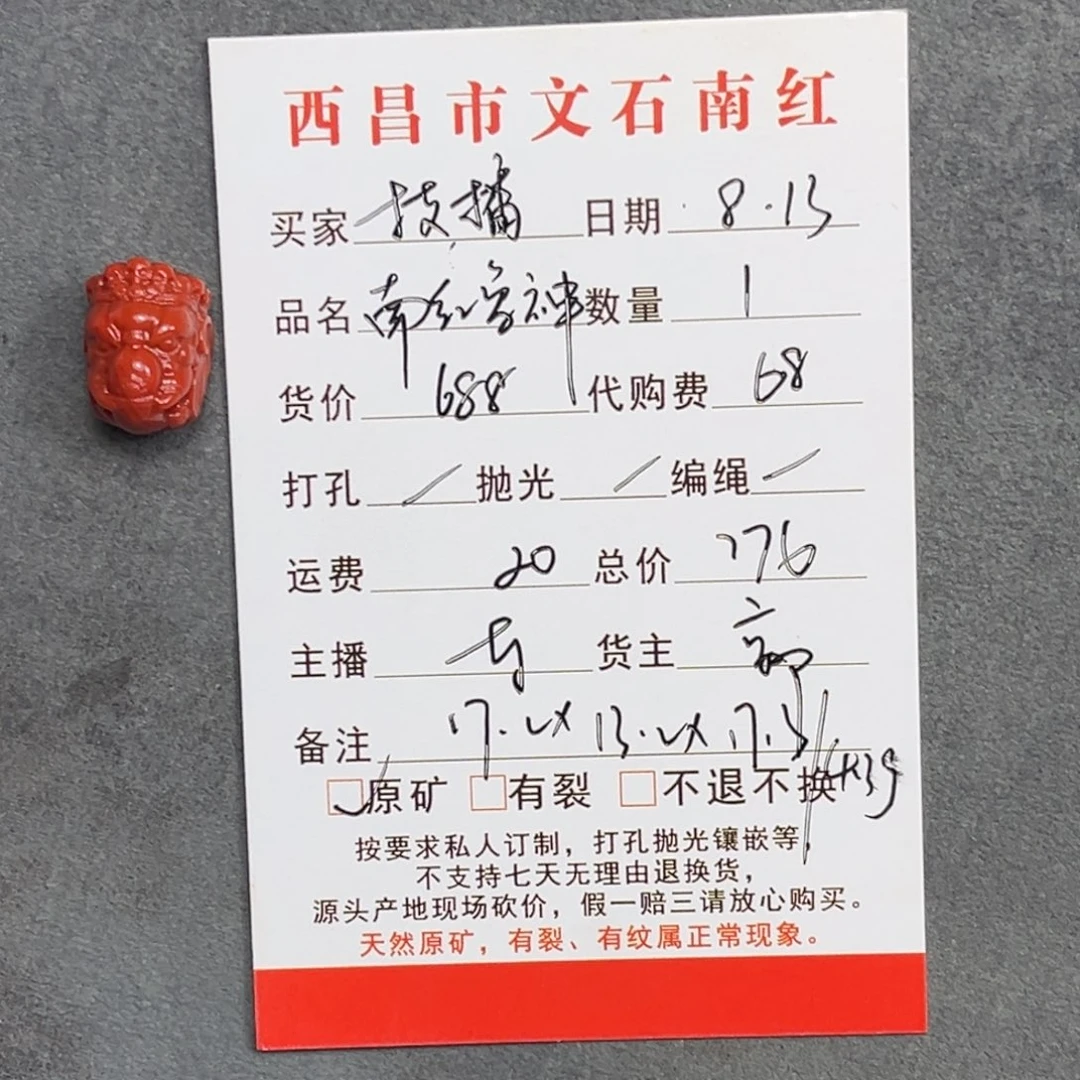 西昌市文石南红
买家 技播 日期 8.13
品名 南红 神 数量 1
货价 688 代购费 68
打孔 / 抛光 / 编绳 /
运费 20 总价 776
主播 货主 郭
备注 17.
原矿 有裂 不退不换
按要求私人订制，打孔抛光镶嵌等，
不支持七天无理由退换货，
源头产地现场砍价，假一赔三请放心购买。
天然原矿，有裂、有纹属正常现象。